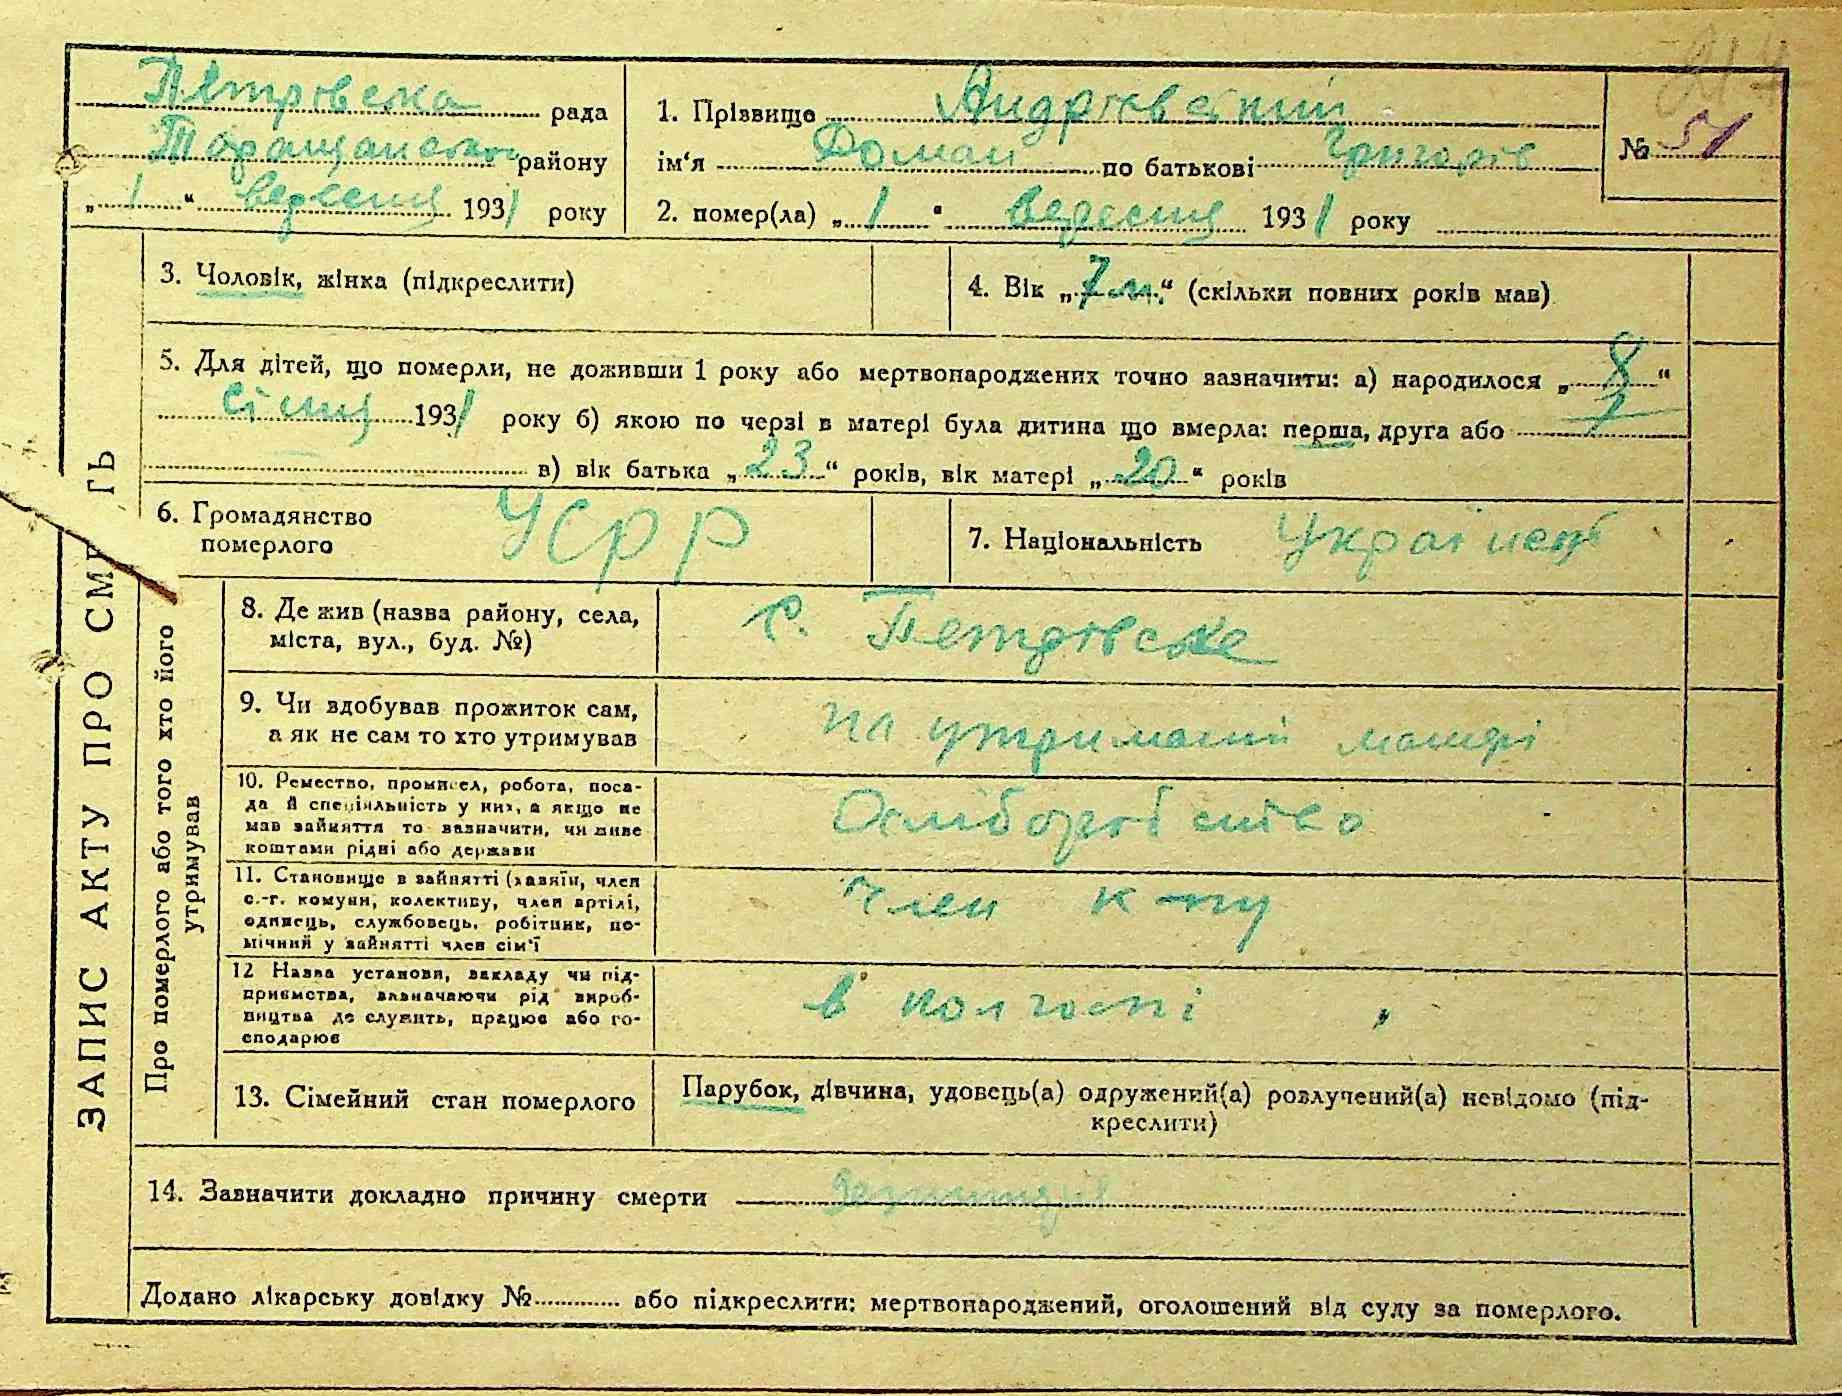 Петрівська рада
Таращанського району
„ 1 “ вересня 1931 року
1. Прізвище Андрієвський
ім‘я Доман по батькові Григорів
2. помер(ла) „ 1 “ вересня 1931 року
№ 51
217
ЗАПИС АКТУ ПРО СМЕ ТЬ
3. Чоловік, жінка (підкреслити)
4. Вік „ 7 м. “ (скільки повних років мав)
5. Для дітей, що померли, не доживши 1 року або мертвонароджених точно зазначити: а) народилося „ 8 “
січня 1931 року б) якою по черзі в матері була дитина що вмерла: перша, друга або 1
в) вік батька „ 23 “ років, вік матері „ 20 “ років
6. Громадянство
померлого
УСРР
7. Національність
Українець
Про померлого або того хто його
утримував
8. Де жив (назва району, села,
міста, вул., буд. №)
с. Петрівське
9. Чи вдобував прожиток сам,
а як не сам то хто утримував
на утриманні матері
10. Ремество, промисел, робота, поса-
да й спеціяльність у них, а якщо не
мав зайняття то вазначити, чи живе
коштами рідні або держави
11. Становище в зайнятті (хазяїн, член
с.-г. комуни, колективу, член артілі,
одинець, службовець, робітник, по-
мічний у зайнятті член сім‘ї
Член к-ву
12 Назва установи, закладу чи під-
приємства, зазначаючи рід вироб-
ництва де служить, працює або го-
сподарює
в колгоспі
13. Сімейний стан померлого
Парубок, дівчина, удовець(а) одружений(а) розлучений(а) невідомо (під-
креслити)
14. Зазначити докладно причину смерти
Додано лікарську довідку № або підкреслити: мертвонароджений, оголошений від суду за померлого.